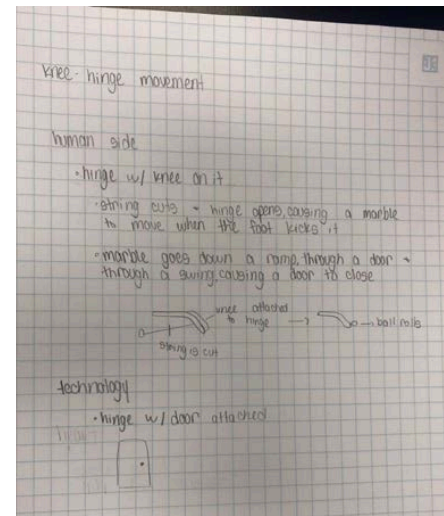 knee-hinge movement
human side
• hinge w/ knee on it
• string cuts → hinge opens, causing a marble
to move when the foot kicks it
• marble goes down a ramp, through a door →
through a swing, causing a door to close
knee attached
to hinge
ball rolls
string is cut
technology
• hinge w/ door attached